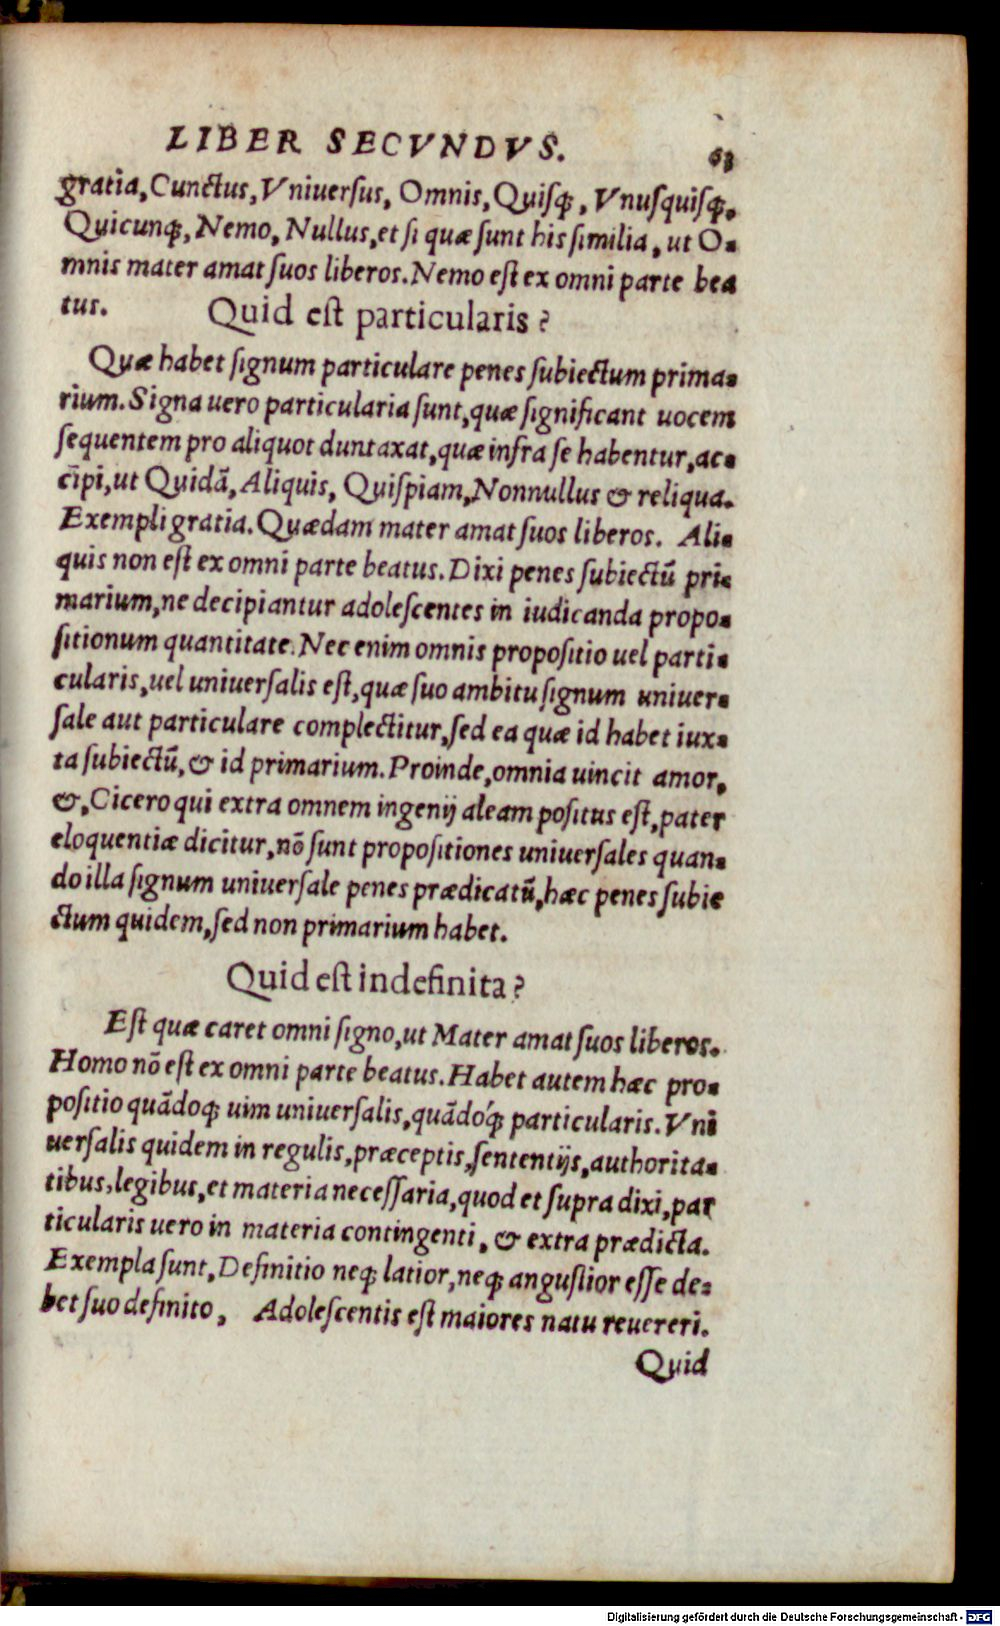 LIBER SECVNDVS. 63
gratia, Cunctus, Vniuerſus, Omnis, Quiſq;, Vnuſquiſq;,
Quicunq;, Nemo, Nullus, et ſi quæ ſunt his ſimilia, ut O-
mnis mater amat ſuos liberos. Nemo eſt ex omni parte bea
tus. Quid eſt particularis?
Quæ habet ſignum particulare penes ſubiectum prima-
rium. Signa uero particularia ſunt, quæ ſignificant uocem
ſequentem pro aliquot duntaxat, quæ infra ſe habentur, ac-
cipi, ut Quidā, Aliquis, Quiſpiam, Nonnullus & reliqua.
Exempli gratia. Quædam mater amat ſuos liberos. Ali-
quis non eſt ex omni parte beatus. Dixi penes ſubiectū pri-
marium, ne decipiantur adoleſcentes in iudicanda propo-
ſitionum quantitate. Nec enim omnis propoſitio uel parti-
cularis, uel uniuerſalis eſt, quæ ſuo ambitu ſignum uniuer-
ſale aut particulare complectitur, ſed ea quæ id habet iux-
ta ſubiectū, & id primarium. Proinde, omnia uincit amor,
&, Cicero qui extra omnem ingenij aleam poſitus eſt, pater
eloquentiæ dicitur, nō ſunt propoſitiones uniuerſales quan-
do illa ſignum uniuerſale penes prædicatū, hæc penes ſubie
ctum quidem, ſed non primarium habet.
Quid eſt indefinita?
Eſt quæ caret omni ſigno, ut Mater amat ſuos liberos.
Homo nō eſt ex omni parte beatus. Habet autem hæc pro-
poſitio quādoq; uim uniuerſalis, quādoq́; particularis. Vni
uerſalis quidem in regulis, præceptis, ſententijs, authorita-
tibus, legibus, et materia neceſſaria, quod et ſupra dixi, par
ticularis uero in materia contingenti, & extra prædicta.
Exempla ſunt, Definitio neq; latior, neq; anguſtior eſſe de-
bet ſuo definito, Adoleſcentis eſt maiores natu reuereri.
Quid
Digitalisierung gefördert durch die Deutsche Forschungsgemeinschaft - DFG